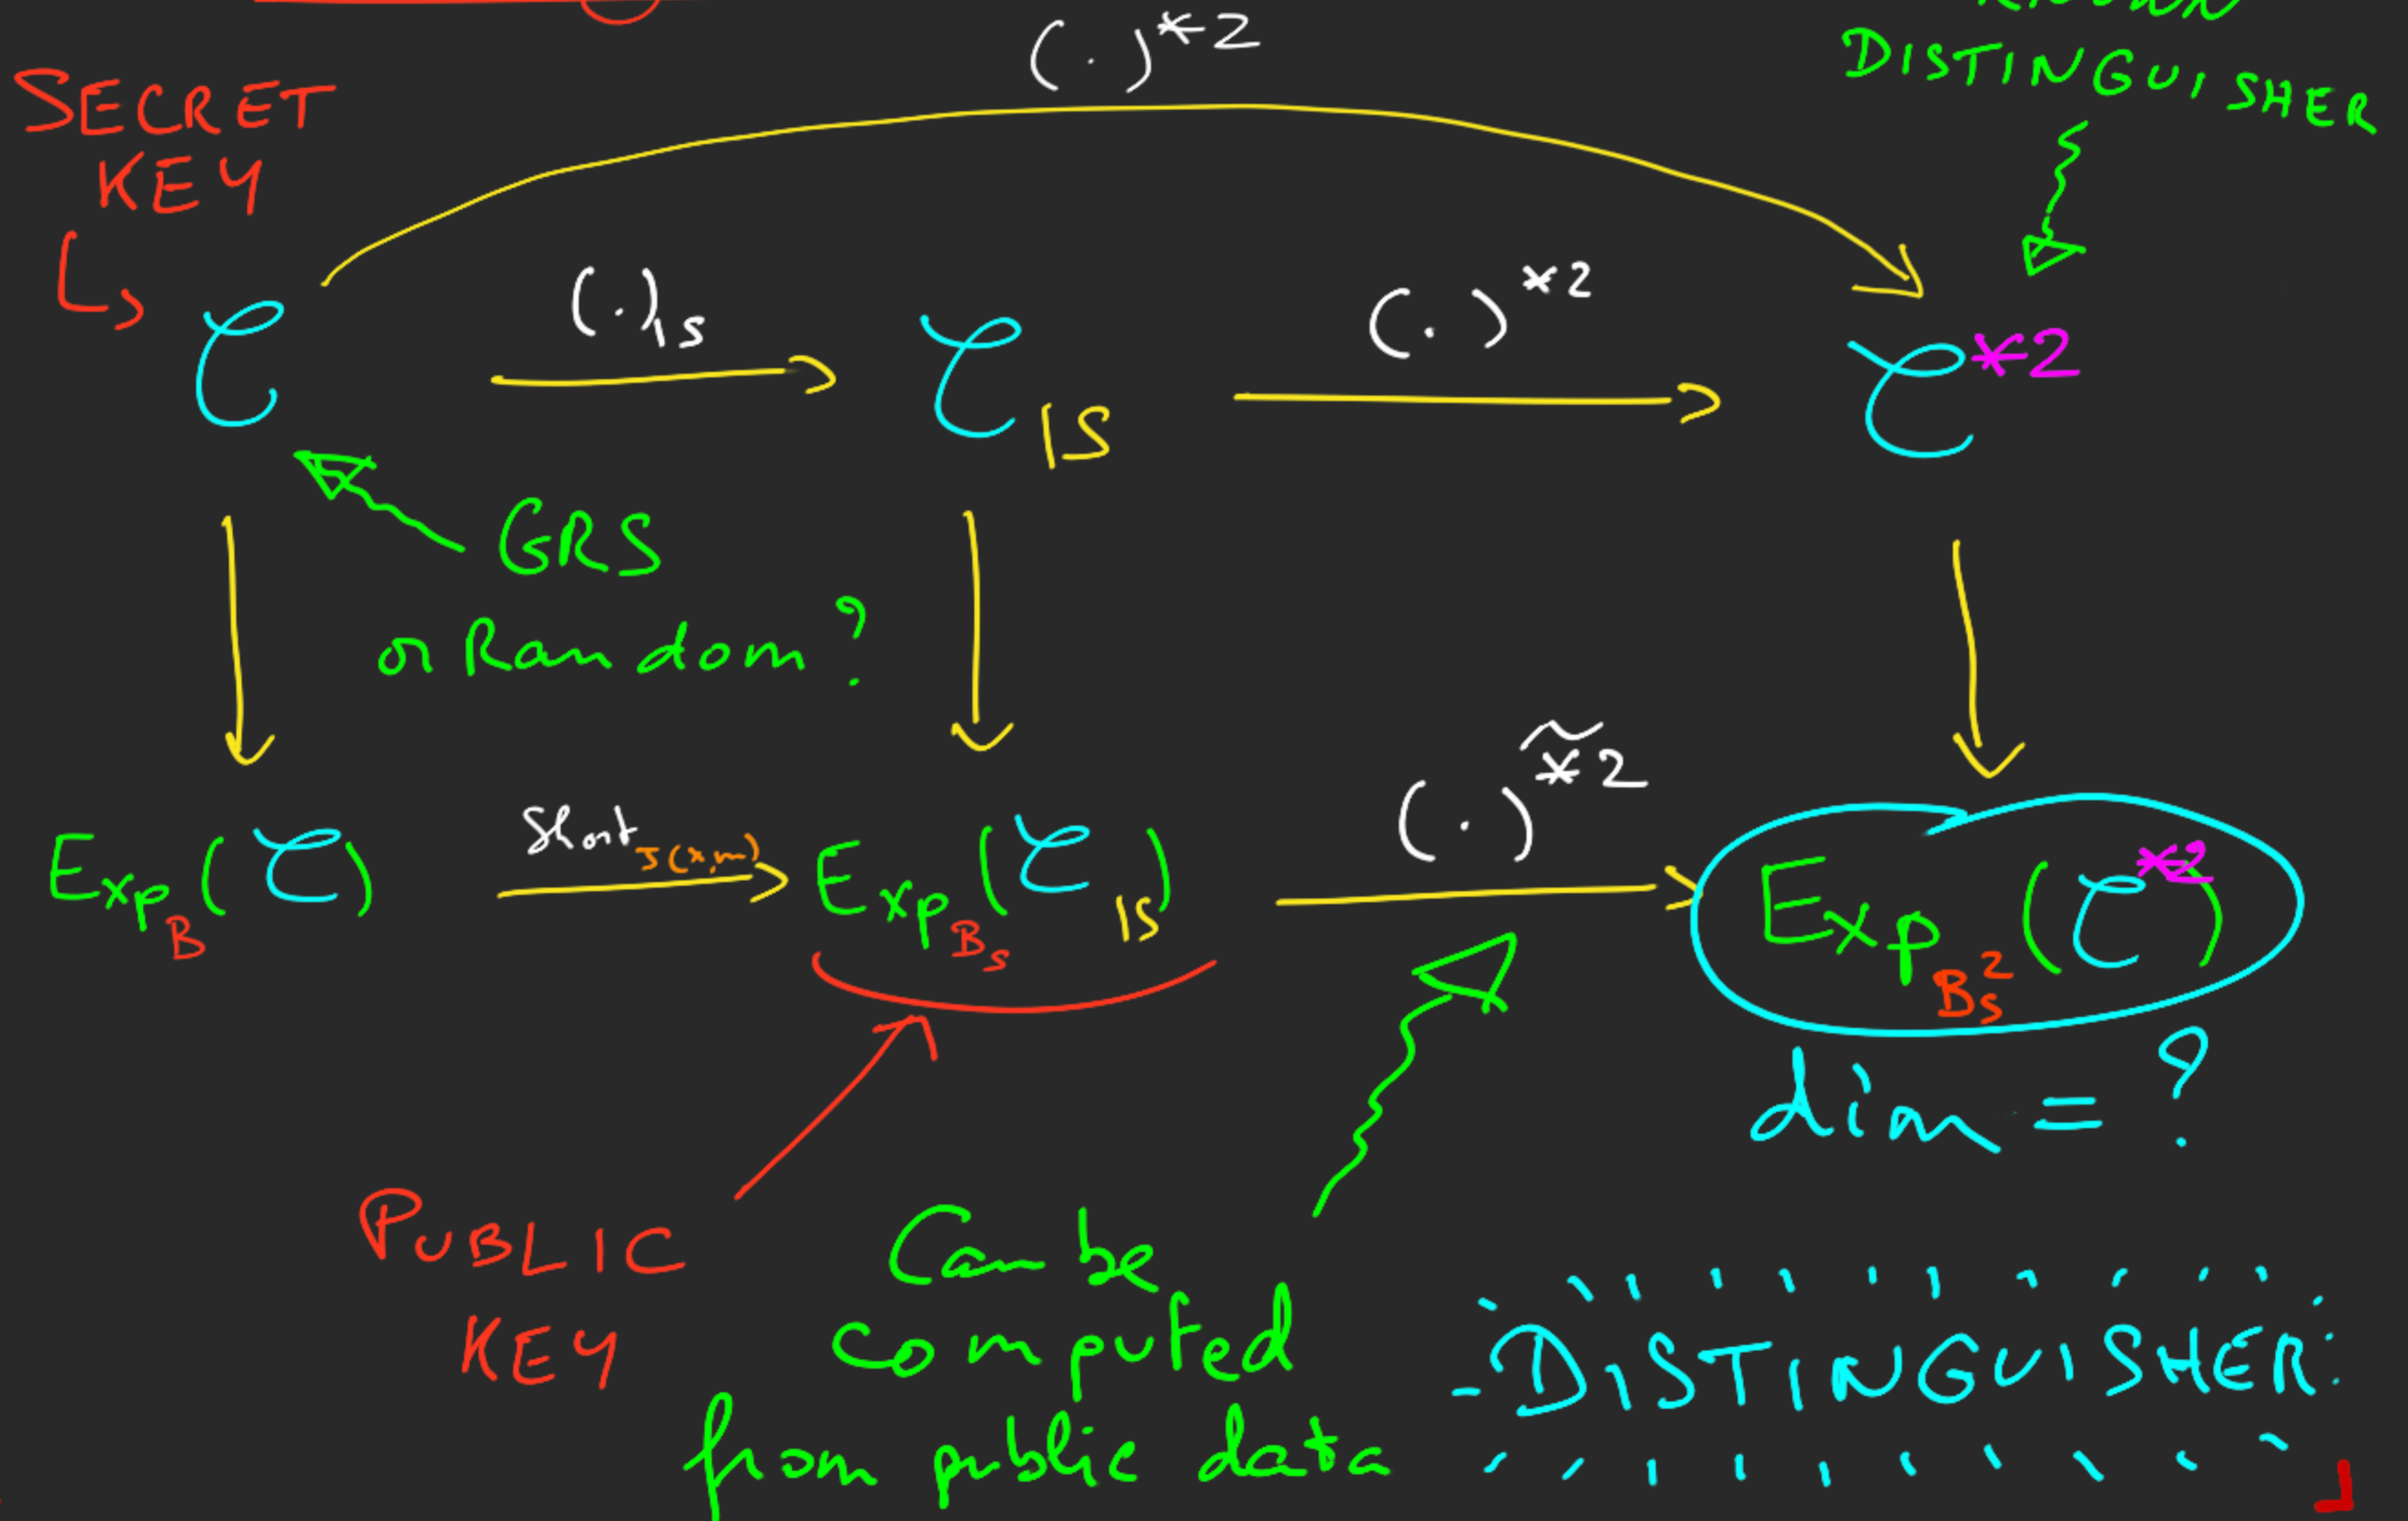 (·)*2
DISTINGUISHER
SECRET
KEY
↳
𝒞
(·)|S
𝒞|S
(·)*2
𝒞*2
GRS
or Random?
Exp_B(𝒞)
Short_J(x,m)
Exp_B_S(𝒞|S)
(·)^~*2
Exp_B_S^2(𝒞*2)
dim = ?
PUBLIC
KEY
Can be
computed
from public data
DISTINGUISHER